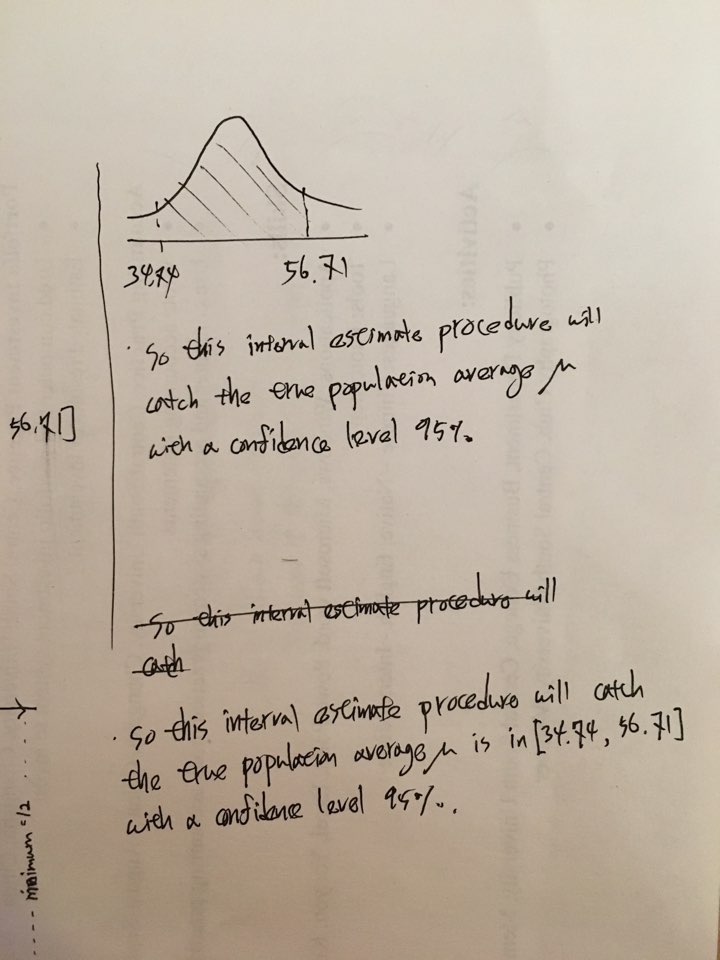 34.74 56.71
· So this interval estimate procedure will
catch the true population average μ
56.71]
with a confidence level 95%.
So this interval estimate procedure will
catch
· So this interval estimate procedure will catch
the true population average μ is in [34.74, 56.71]
with a confidence level 95%.
Activities: